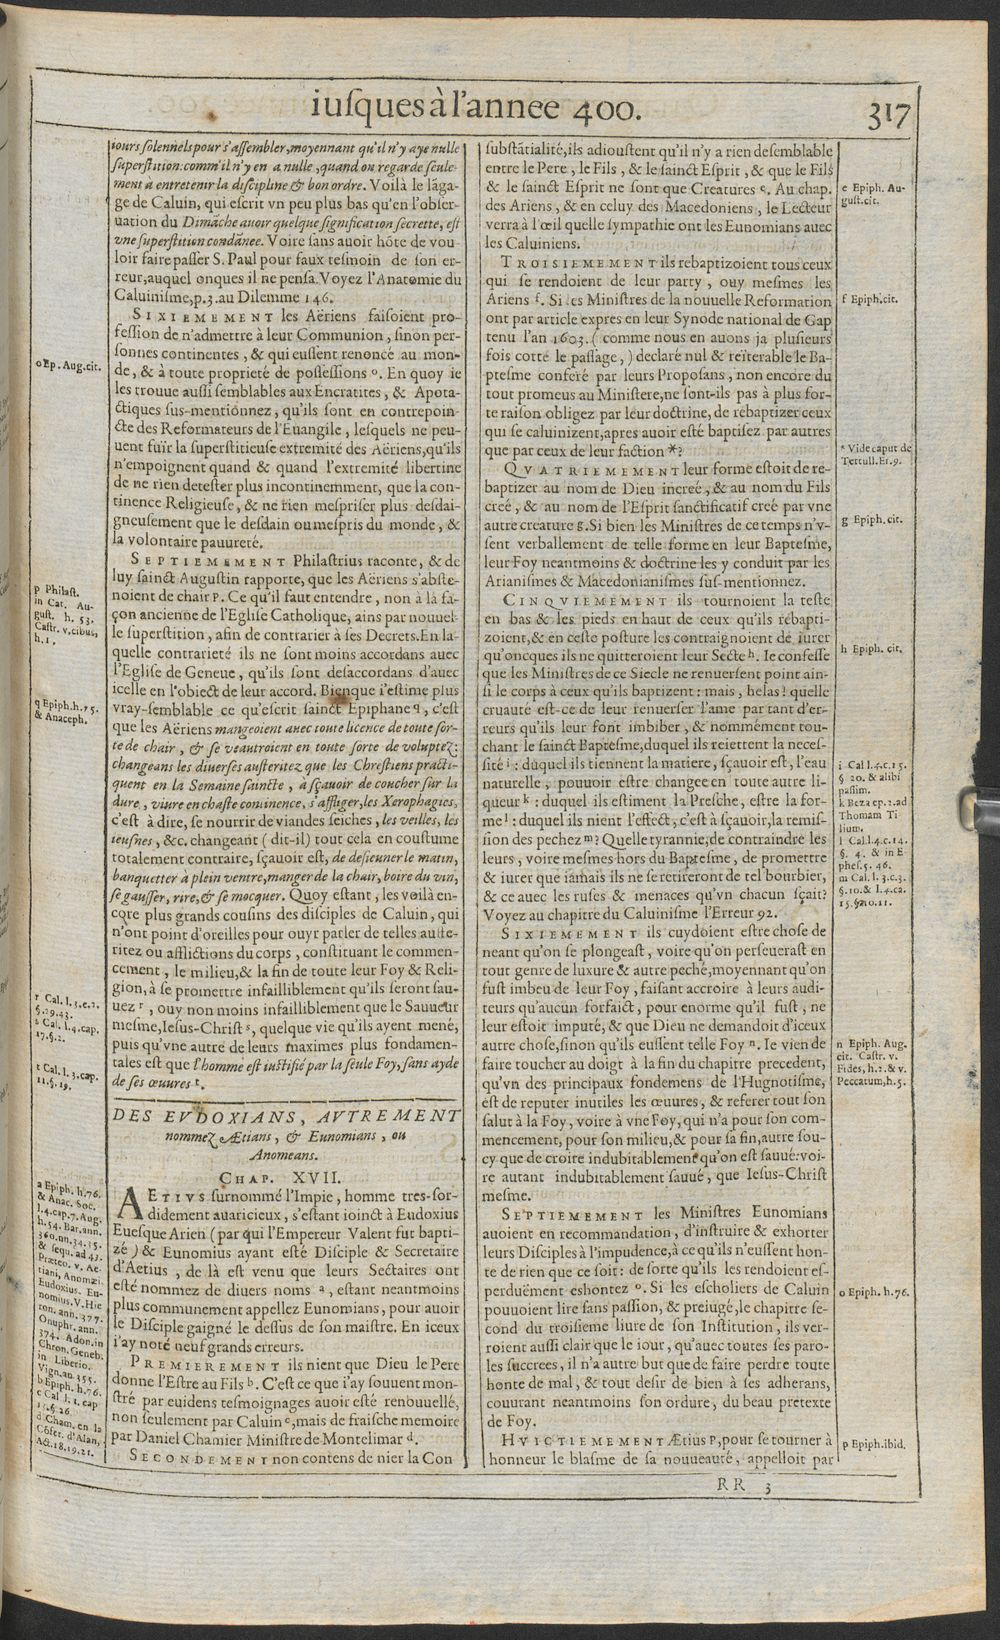 iuſques à l'annee 400.
317
iours ſolennels pour s'aſſembler, moyennant qu'il n'y aye nulle
ſuperſtition. comm'il n'y en a nulle, quand on regarde ſeule-
ment à entretenir la diſcipline & bon ordre. Voilà le lāga-
ge de Caluin, qui eſcrit vn peu plus bas qu'en l'obſer-
uation du Dimāche auoir quelque ſignification ſecrette, eſt
vne ſuperſtition condānee. Voire ſans auoir hōte de vou-
loir faire paſſer S. Paul pour faux teſmoin de ſon er-
reur, auquel onques il ne penſa. Voyez l'Anatomie du
Caluiniſme, p.3. au Dilemme 146.
SIXIEMEMENT les Aëriens faiſoient pro-
feſſion de n'admettre à leur Communion, ſinon per-
ſonnes continentes, & qui euſſent renoncé au mon-
de, & à toute proprieté de poſſeſſions o. En quoy ie
les trouue auſſi ſemblables aux Encratites, & Apota-
ctiques ſus-mentionnez, qu'ils ſont en contrepoin-
cte des Reformateurs de l'Euangile, leſquels ne peu-
uent fuïr la ſuperſtitieuſe extremité des Aëriens, qu'ils
n'empoignent quand & quand l'extremité libertine
de ne rien deteſter plus incontinemment, que la con-
tinence Religieuſe, & ne rien meſpriſer plus deſdai-
gneuſement que le deſdain ou meſpris du monde, &
la volontaire pauureté.
SEPTIEMEMENT Philaſtrius raconte, & de
luy ſainct Auguſtin rapporte, que les Aëriens s'abſte-
noient de chair p. Ce qu'il faut entendre, non à la fa-
çon ancienne de l'Egliſe Catholique, ains par nouuel-
le ſuperſtition, afin de contrarier à ſes Decrets. En la-
quelle contrarieté ils ne ſont moins accordans auec
l'Egliſe de Geneue, qu'ils ſont deſaccordans d'auec
icelle en l'obiect de leur accord. Bienque i'eſtime plus
vray-ſemblable ce qu'eſcrit ſainct Epiphane q, c'eſt
que les Aëriens mangeoient auec toute licence de toute ſor-
te de chair, & ſe veautroient en toute ſorte de voluptez:
changeans les diuerſes auſteritez que les Chreſtiens practi-
quent en la Semaine ſaincte, à ſçauoir de coucher ſur la
dure, viure en chaſte continence, s'affliger, les Xerophagies,
c'eſt à dire, ſe nourrir de viandes ſeiches, les veilles, les
ieuſnes, &c. changeant (dit-il) tout cela en couſtume
totalement contraire, ſçauoir eſt, de deſieuner le matin,
banquetter à plein ventre, manger de la chair, boire du vin,
ſe gauſſer, rire, & ſe mocquer. Quoy eſtant, les voilà en-
core plus grands couſins des diſciples de Caluin, qui
n'ont point d'oreilles pour ouyr parler de telles auſte-
ritez ou afflictions du corps, conſtituant le commen-
cement, le milieu, & la fin de toute leur Foy & Reli-
gion, à ſe promettre infailliblement qu'ils ſeront ſau-
uez r, ouy non moins infailliblement que le Sauueur
meſme, Ieſus-Chriſt s, quelque vie qu'ils ayent mené,
puis qu'vne autre de leurs maximes plus fondamen-
tales eſt que l'homme eſt iuſtifié par la ſeule Foy, ſans ayde
de ſes œuures t.
DES EVDOXIANS, AVTREMENT
nommez Ætians, & Eunomians, ou
Anomeans.
CHAP. XVII.
AETIVS ſurnommé l'Impie, homme tres-ſor-
didement auaricieux, s'eſtant ioinct à Eudoxius
Eueſque Arien (par qui l'Empereur Valent fut bapti-
zé) & Eunomius ayant eſté Diſciple & Secretaire
d'Aetius, de là eſt venu que leurs Sectaires ont
eſté nommez de diuers noms a, eſtant neantmoins
plus communement appellez Eunomians, pour auoir
le Diſciple gaigné le deſſus de ſon maiſtre. En iceux
i'ay noté neuf grands erreurs.
PREMIEREMENT ils nient que Dieu le Pere
donne l'Eſtre au Fils b. C'eſt ce que i'ay ſouuent mon-
ſtré par euidens teſmoignages auoir eſté renouuellé,
non ſeulement par Caluin c, mais de fraiſche memoire
par Daniel Chamier Miniſtre de Montelimar d.
SECONDEMENT non contens de nier la Con
o Ep. Aug. cit.
p Philaſt.
in Cat. Au-
guſt. h. 53.
Caſtr. v. cibus,
h. 1.
q Epiph. h. 75.
& Anaceph.
r Cal. l. 3. c. 2.
§. 29. 43.
s Cal. l. 4. cap.
17. §. 2.
t Cal. l. 3. cap.
11. §. 19.
a Epiph. h. 76.
& Anac. Soc.
l. 4. cap. 7. Aug.
h. 54. Bar. ann.
360. nu. 34. 35.
& ſequ. ad 43.
Præteo. v. Ae-
tiani, Anomæi.
Eudoxius. Eu-
nomius. V. Hie
ron. ann. 377.
Onuphr. ann.
374. Adon. in
Chron. Geneb.
in Liberio.
Vign. an. 355.
b Epiph. h. 76.
c Cal. l. 1. cap
13. §. 26.
d Cham. en la
Cōfer. d'Alan,
Act. 18. 19. 21.
ſubſtātialité, ils adiouſtent qu'il n'y a rien de ſemblable
entre le Pere, le Fils, & le ſainct Eſprit, & que le Fils
& le ſainct Eſprit ne ſont que Creatures e. Au chap.
des Ariens, & en celuy des Macedoniens, le Lecteur
verra à l'œil quelle ſympathie ont les Eunomians auec
les Caluiniens.
TROISIEMEMENT ils rebaptizoient tous ceux
qui ſe rendoient de leur party, ouy meſmes les
Ariens f. Si les Miniſtres de la nouuelle Reformation
ont par article expres en leur Synode national de Gap
tenu l'an 1603. (comme nous en auons ja pluſieurs
fois cotté le paſſage,) declaré nul & reïterable le Ba-
pteſme conferé par leurs Propoſans, non encore du
tout promeus au Miniſtere, ne ſont-ils pas à plus for-
te raiſon obligez par leur doctrine, de rebaptizer ceux
qui ſe caluinizent, apres auoir eſté baptiſez par autres
que par ceux de leur faction *?
QVATRIEMEMENT leur forme eſtoit de re-
baptizer au nom de Dieu increé, & au nom du Fils
creé, & au nom de l'Eſprit ſanctificatif creé par vne
autre creature g. Si bien les Miniſtres de ce temps n'v-
ſent verballement de telle forme en leur Bapteſme,
leur Foy neantmoins & doctrine les y conduit par les
Arianiſmes & Macedonianiſmes ſus-mentionnez.
CINQVIEMEMENT ils tournoient la teſte
en bas & les pieds en haut de ceux qu'ils rebapti-
zoient, & en ceſte poſture les contraignoient de iurer
qu'oncques ils ne quitteroient leur Secte h. Ie confeſſe
que les Miniſtres de ce Siecle ne renuerſent point ain-
ſi le corps à ceux qu'ils baptizent: mais, helas! quelle
cruauté eſt-ce de leur renuerſer l'ame par tant d'er-
reurs qu'ils leur font imbiber, & nommément tou-
chant le ſainct Bapteſme, duquel ils reiettent la neceſ-
ſité i: duquel ils tiennent la matiere, ſçauoir eſt, l'eau
naturelle, pouuoir eſtre changee en toute autre li-
queur k: duquel ils eſtiment la Preſche, eſtre la for-
me l: duquel ils nient l'effect, c'eſt à ſçauoir, la remiſ-
ſion des pechez m? Quelle tyrannie, de contraindre les
leurs, voire meſmes hors du Bapteſme, de promettre
& iurer que iamais ils ne ſe retireront de tel bourbier,
& ce auec les ruſes & menaces qu'vn chacun ſçait?
Voyez au chapitre du Caluiniſme l'Erreur 92.
SIXIEMEMENT ils cuydoient eſtre choſe de
neant qu'on ſe plongeaſt, voire qu'on perſeueraſt en
tout genre de luxure & autre peché, moyennant qu'on
fuſt imbeu de leur Foy, faiſant accroire à leurs audi-
teurs qu'aucun forfaict, pour enorme qu'il fuſt, ne
leur eſtoit imputé, & que Dieu ne demandoit d'iceux
autre choſe, ſinon qu'ils euſſent telle Foy n. Ie vien de
faire toucher au doigt à la fin du chapitre precedent,
qu'vn des principaux fondemens de l'Hugnotiſme,
eſt de reputer inutiles les œuures, & referer tout ſon
ſalut à la Foy, voire à vne Foy, qui n'a pour ſon com-
mencement, pour ſon milieu, & pour ſa fin, autre ſou-
cy que de croire indubitablement qu'on eſt ſauué: voi-
re autant indubitablement ſauué, que Ieſus-Chriſt
meſme.
SEPTIEMEMENT les Miniſtres Eunomians
auoient en recommandation, d'inſtruire & exhorter
leurs Diſciples à l'impudence, à ce qu'ils n'euſſent hon-
te de rien que ce ſoit: de ſorte qu'ils les rendoient eſ-
perduëment eshontez o. Si les eſcholiers de Caluin
pouuoient lire ſans paſſion, & preiugé, le chapitre ſe-
cond du troiſieme liure de ſon Inſtitution, ils ver-
roient auſſi clair que le iour, qu'auec toutes ſes paro-
les ſuccrees, il n'a autre but que de faire perdre toute
honte de mal, & tout deſir de bien à ſes adherans,
couurant neantmoins ſon ordure, du beau pretexte
de Foy.
HVICTIEMEMENT Ætius p, pour ſe tourner à
honneur le blaſme de ſa nouueauté, appelloit par
e Epiph. Au-
guſt. cit.
f Epiph. cit.
* Vide caput de
Tertull. Er. 9.
g Epiph. cit.
h Epiph. cit.
i Cal l. 4. c. 15.
§ 20. & alibi
paſſim.
k Beza ep. 2. ad
Thomam Ti
lium.
l Cal. l. 4. c. 14.
§. 4. & in E-
pheſ. 5. 46.
m Cal. l. 3. c. 3.
§. 10. & l. 4. ca.
15. §. 10. 11.
n Epiph. Aug.
cit. Caſtr. v.
Fides, h. 2. & v.
Peccatum, h. 5.
o Epiph. h. 76.
p Epiph. ibid.
RR 3